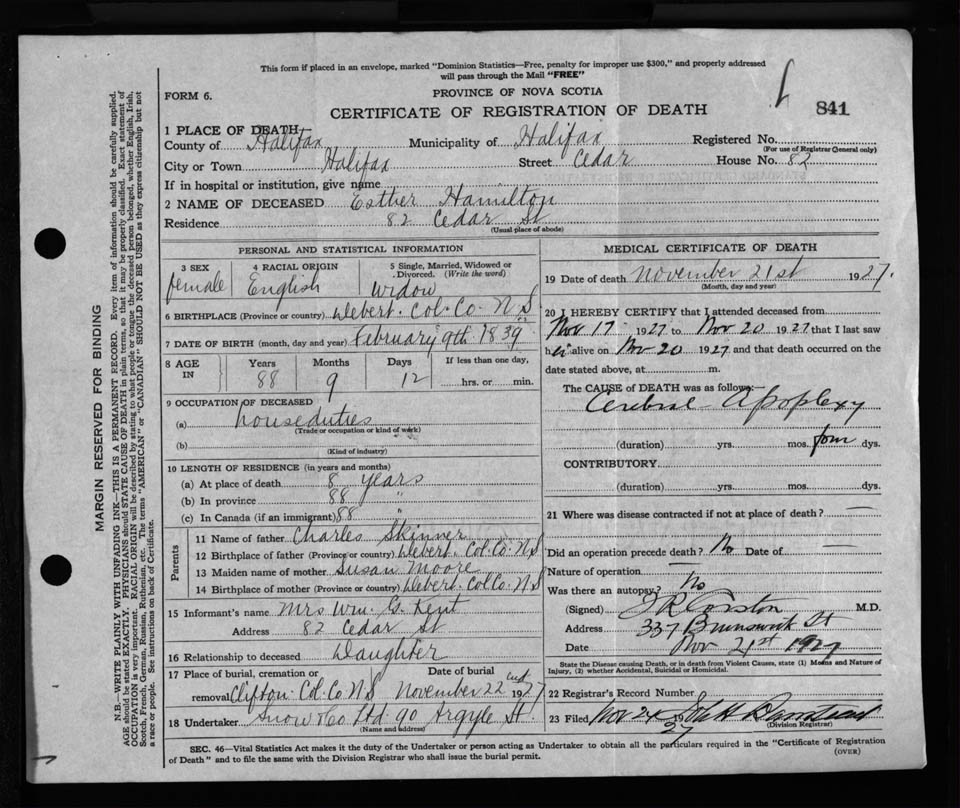 This form if placed in an envelope, marked "Dominion Statistics—Free, penalty for improper use $300," and properly addressed
will pass through the Mail "FREE"
FORM 6.
PROVINCE OF NOVA SCOTIA
CERTIFICATE OF REGISTRATION OF DEATH
841
1 PLACE OF DEATH
County of Halifax Municipality of Halifax Registered No.
(For use of Registrar General only)
City or Town Halifax Street Cedar House No. 82
If in hospital or institution, give name
2 NAME OF DECEASED Esther Hamilton
Residence 82 Cedar St
(Usual place of abode)
PERSONAL AND STATISTICAL INFORMATION
3 SEX female
4 RACIAL ORIGIN English
5 Single, Married, Widowed or Divorced. (Write the word) Widow
6 BIRTHPLACE (Province or country) Debert. Col. Co. N S
7 DATE OF BIRTH (month, day and year) February 9th 1839
8 AGE IN Years 88 Months 9 Days 12 If less than one day, hrs. or min.
9 OCCUPATION OF DECEASED
(a) houseduties
(Trade or occupation or kind of work)
(b)
(Kind of industry)
10 LENGTH OF RESIDENCE (in years and months)
(a) At place of death 8 years
(b) In province 88 "
(c) In Canada (if an immigrant) 88 "
Parents
11 Name of father Charles Skinner
12 Birthplace of father (Province or country) Debert. Col. Co. N S
13 Maiden name of mother Susan Moore
14 Birthplace of mother (Province or country) Debert. Col Co. N S
15 Informant's name Mrs Wm. G. Kent
Address 82 Cedar St
16 Relationship to deceased Daughter
17 Place of burial, cremation or removal Clifton Col. Co N S Date of burial November 22 1927
18 Undertaker Snow & Co Ltd 90 Argyle St.
(Name and address)
MEDICAL CERTIFICATE OF DEATH
19 Date of death November 21st 1927.
(Month, day and year)
20 I HEREBY CERTIFY that I attended deceased from
Nov 17 1927 to Nov 20 1927 that I last saw
her alive on Nov 20 1927 and that death occurred on
date stated above, at m.
The CAUSE OF DEATH was as follows:
Cerebral Apoplexy
(duration) yrs. mos. four dys.
CONTRIBUTORY
(duration) yrs. mos. dys.
21 Where was disease contracted if not at place of death? —
Did an operation precede death? No Date of —
Nature of operation —
Was there an autopsy? No
(Signed) J R Corston M.D.
Address 337 Brunswick St
Date Nov 21st 1927
State the Disease causing Death, or in death from Violent Causes, state (1) Means and Nature of
Injury, (2) whether Accidental, Suicidal or Homicidal.
22 Registrar's Record Number
23 Filed Nov 24 1927
(Division Registrar)
SEC. 46—Vital Statistics Act makes it the duty of the Undertaker or person acting as Undertaker to obtain all the particulars required in the "Certificate of Registration
of Death" and to file the same with the Division Registrar who shall issue the burial permit.
(OVER)
MARGIN RESERVED FOR BINDING
N.B.—WRITE PLAINLY WITH UNFADING INK—THIS IS A PERMANENT RECORD. Every item of information should be carefully supplied.
AGE should be stated EXACTLY. PHYSICIANS should STATE CAUSE OF DEATH in plain terms, so that it may be properly classified. Exact statement of
OCCUPATION is very important. RACIAL ORIGIN will be described by stating to what people or tongue the deceased person belonged, whether English, Irish,
Scotch, French, German, Russian, Ruthenian, etc. The terms "AMERICAN" or "CANADIAN" SHOULD NOT BE USED as they express citizenship but not
a race or people. See instructions on back of Certificate.